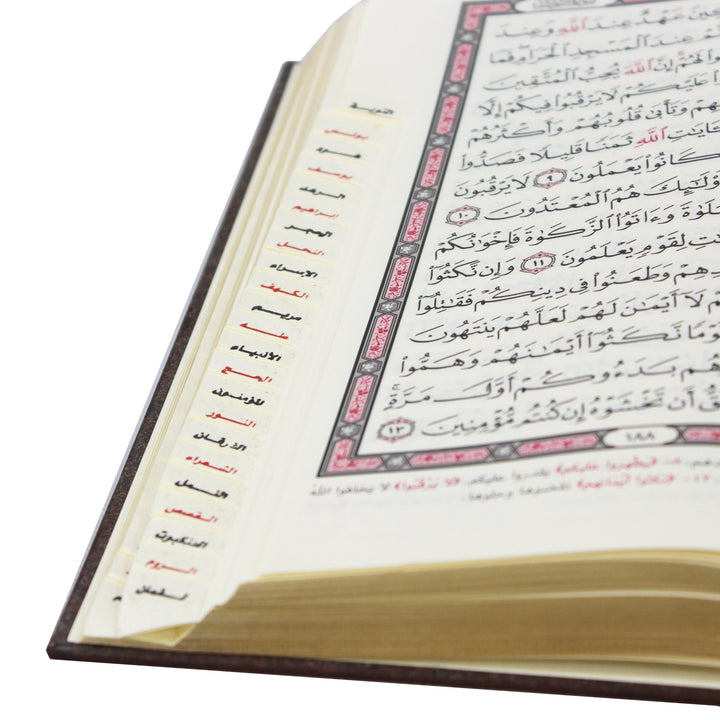 التوبة
يونس
هود
يوسف
الرعد
ابراهيم
الحجر
النحل
الإسراء
الكهف
مريم
طه
الأنبياء
الحج
المؤمنون
النور
الفرقان
الشعراء
النمل
القصص
العنكبوت
الروم
لقمان
عَهْدٌ عِندَ ٱللَّهِ وَعِندَ
عِندَ ٱلْمَسْجِدِ ٱلْحَرَامِ فَمَا
لَهُمْ إِنَّ ٱللَّهَ يُحِبُّ ٱلْمُتَّقِينَ
عَلَيْكُمْ لَا يَرْقُبُوا۟ فِيكُمْ إِلًّا
وَتَأْبَىٰ قُلُوبُهُمْ وَأَكْثَرُهُمْ
ٱللَّهِ ثَمَنًا قَلِيلًا فَصَدُّوا۟
كَانُوا۟ يَعْمَلُونَ ٩ لَا يَرْقُبُونَ
هُمُ ٱلْمُعْتَدُونَ ١٠
وَءَاتَوُا۟ ٱلزَّكَوٰةَ فَإِخْوَٰنُكُمْ
لِقَوْمٍ يَعْلَمُونَ ١١ وَإِن نَّكَثُوٓا۟
وَطَعَنُوا۟ فِى دِينِكُمْ فَقَٰتِلُوٓا۟
لَآ أَيْمَٰنَ لَهُمْ لَعَلَّهُمْ يَنتَهُونَ
نَّكَثُوٓا۟ أَيْمَٰنَهُمْ وَهَمُّوا۟
بَدَءُوكُمْ أَوَّلَ مَرَّةٍ
أَن تَخْشَوْهُ إِن كُنتُم مُّؤْمِنِينَ ١٣
١٨٨
٨- ﴿يظهروا عليكم﴾ يقدروا عليكم.